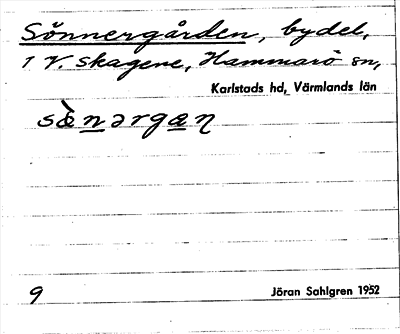 Sönnergården, bydel,
i V. Skagene, Hammarö sn,
Karlstads hd, Värmlands län
sə̀nərgaɳ
9
Jöran Sahlgren 1952